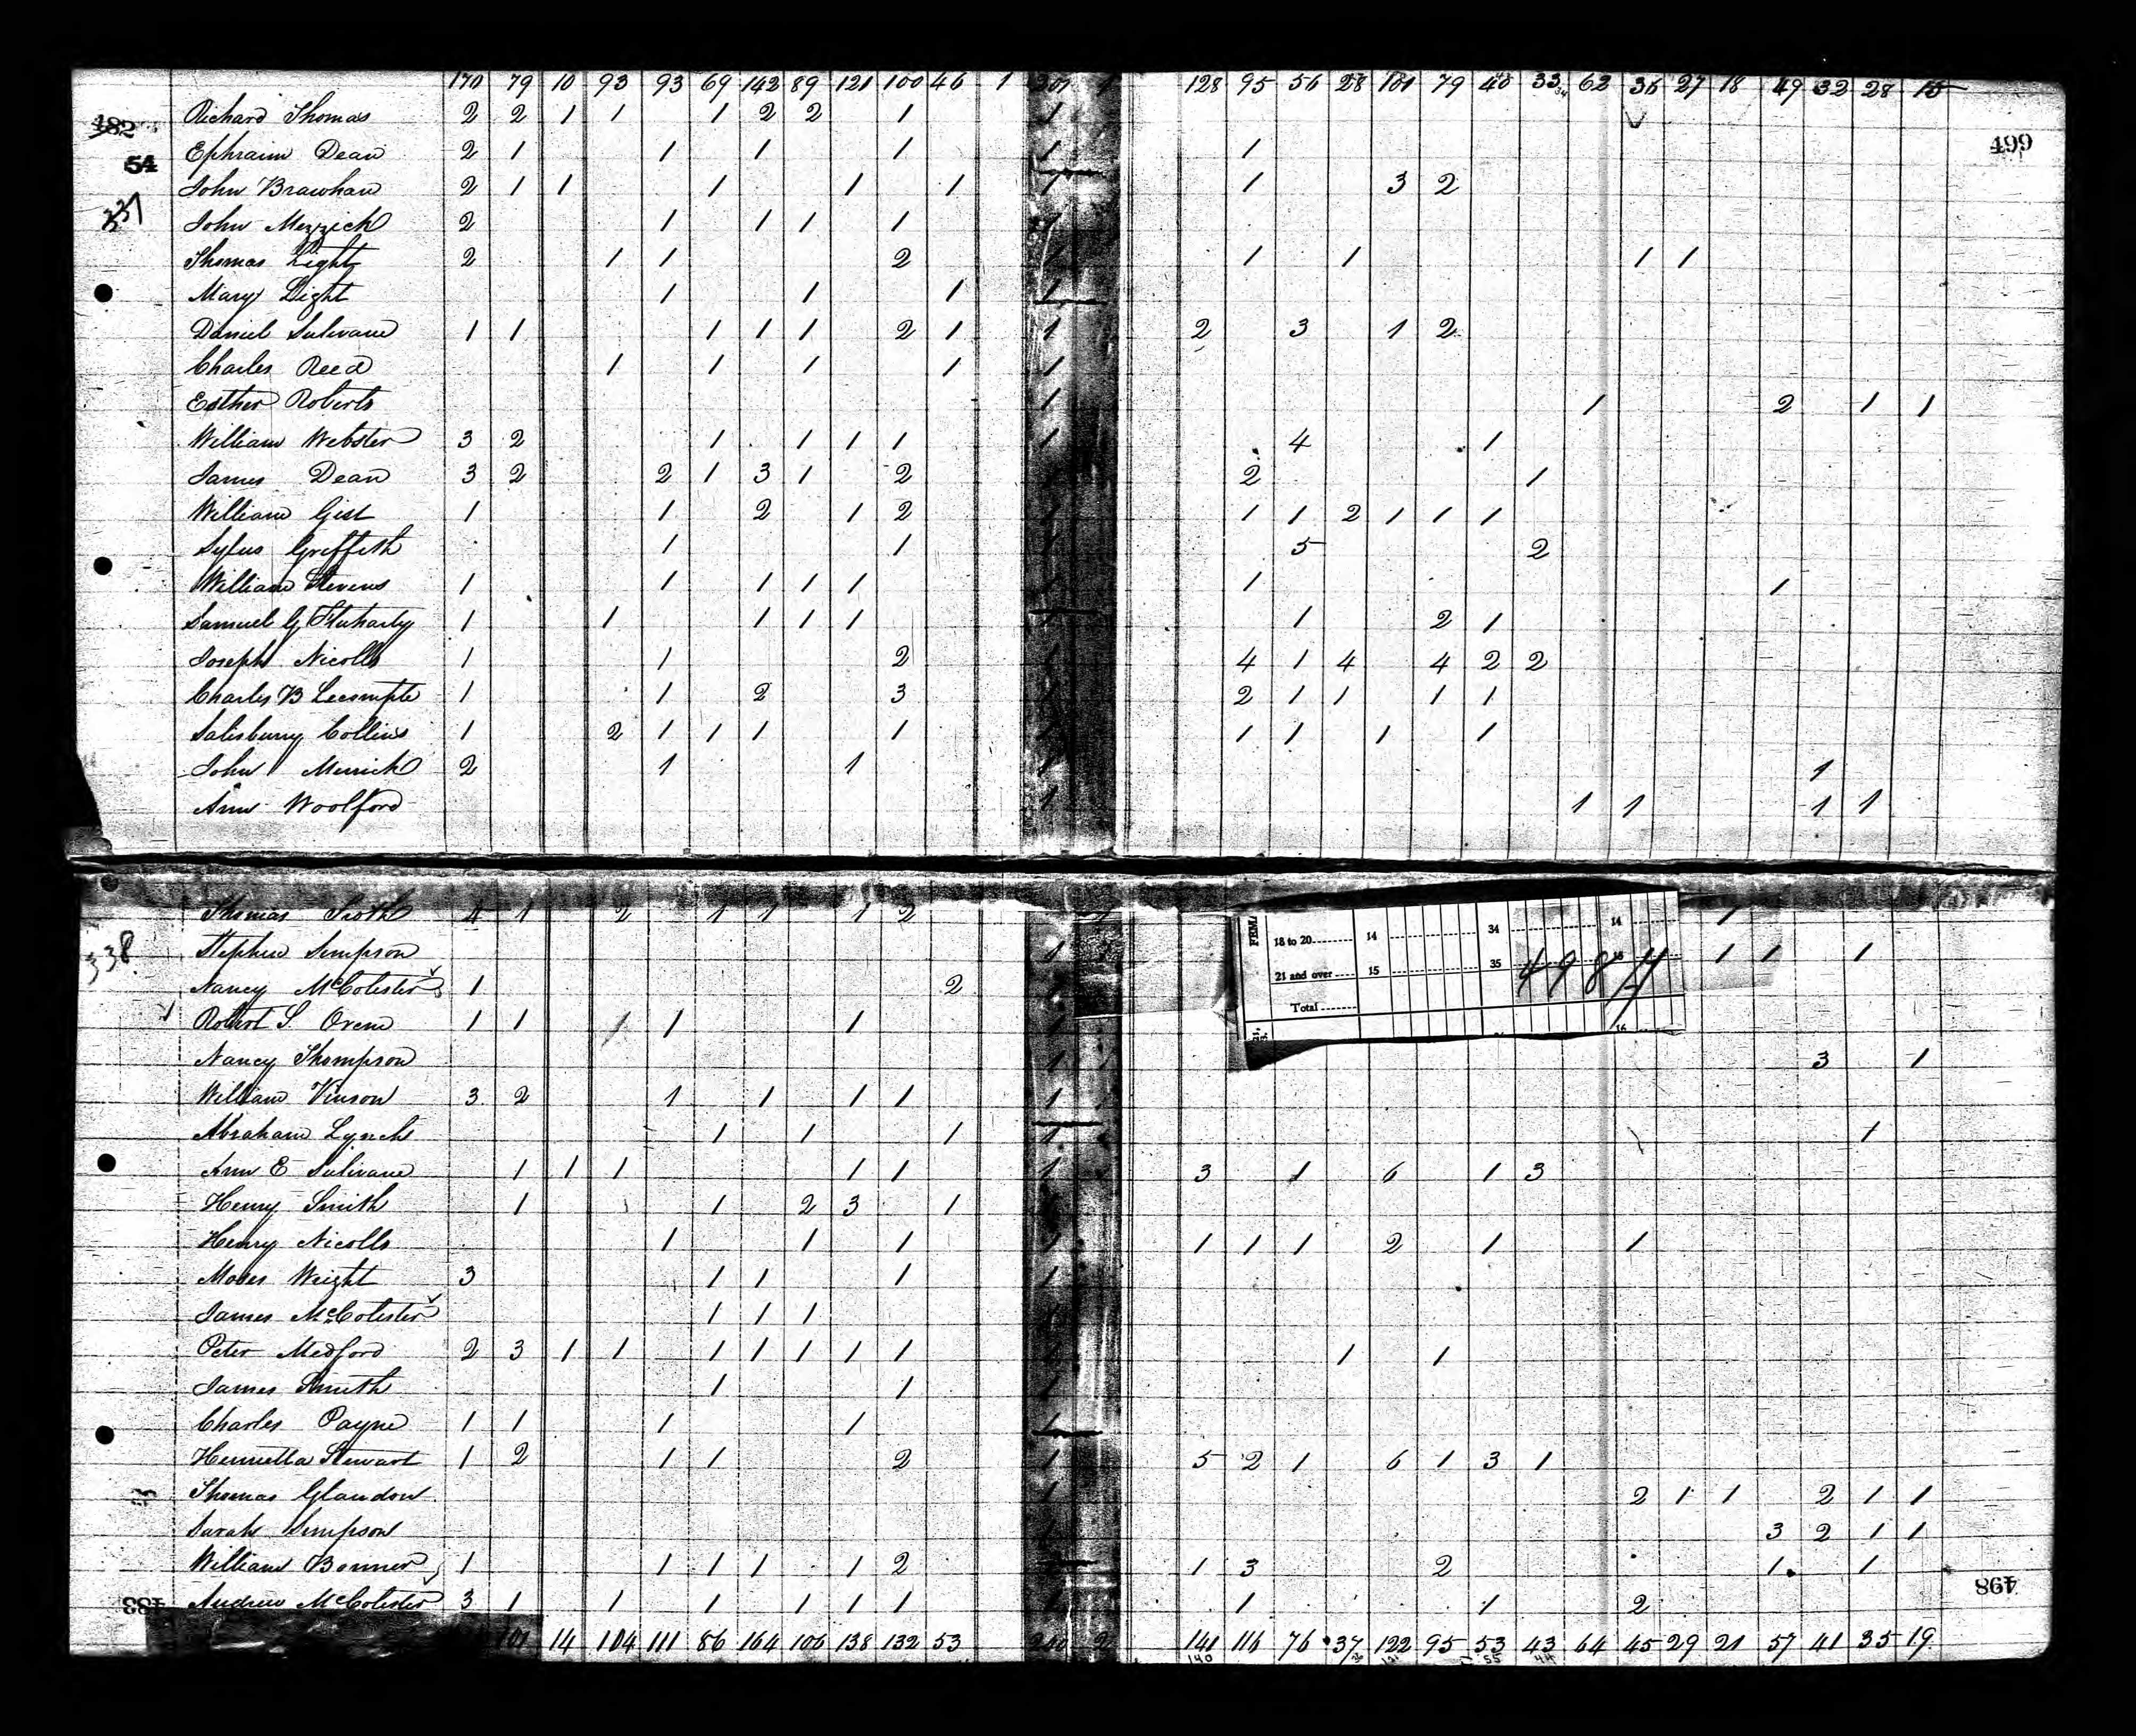 170 79 10 93 93 69 142 89 121 100 46 1 128 95 56 28 101 79 40 33 34 62 36 27 18 49 32 28 15
482 Richard Thomas 2 2 1 1 1 2 2 1 1
499
54 Ephraim Dean 2 1 1 1 1 1 1
John Brawhaw 2 1 1 1 1 1 1 1 3 2
337 John Mezzick 2 1 1 1 1 1
Thomas Light 2 1 1 2 1 1 1 1 1
Mary Light 1 1 1 1
Daniel Sulivane 1 1 1 1 1 2 1 1 2 3 1 2
Charles Reed 1 1 1 1 1
Esther Roberts 1 1 2 1 1
William Webster 3 2 1 1 1 1 1 4 1
James Dean 3 2 2 1 3 1 2 2 1
William Gist 1 1 2 1 2 1 1 1 2 1 1 1
Syfus Griffith 1 1 1 5 2
William Stevens 1 1 1 1 1 1 1
Samuel G Fluharty 1 1 1 1 1 1 1 2 1
Joseph Nicolls 1 1 2 1 4 1 4 4 2 2
Charles B Lecompte 1 1 2 3 1 2 1 1 1 1
Salisbury Collins 1 2 1 1 1 1 1 1 1 1 1
John Merrick 2 1 1 1 1
Ann Woolford 1 1 1 1 1
Thomas 4 1 2 1 1 1 2 1
FEM.
18 to 20 14 34 14
338 Stephen Simpson 1 1 1 1
21 and over 15 35 15
4984
Nancy McColister 1 2
Total
Robert S. Orem 1 1 1 1 1 1
16
Nancy Thompson 1 3 1
William Vinson 3 2 1 1 1 1 1
Abraham Lynch 1 1 1 1 1
Ann E Sulivane 1 1 1 1 1 1 3 1 6 1 3
Henry Smith 1 1 2 3 1
Henry Nicolls 1 1 1 1 1 1 2 1 1
Moses Wright 3 1 1 1 1
James McColister 1 1 1 1
Peter Medford 2 3 1 1 1 1 1 1 1 1 1
James Smith 1 1 1
Charles Payne 1 1 1 1 1
Henrietta Stewart 1 2 1 1 2 1 5 2 1 6 1 3 1
Thomas Glandon 1 2 1 1 2 1 1
Sarah Simpson 3 2 1 1
William Bonner 1 1 1 1 1 2 1 3 2 1 1
498
483 Andrew McColister 3 1 1 1 1 1 1 1 1 1 2
101 14 104 111 86 164 106 138 132 53 2 141 116 76 37 122 95 53 43 64 45 29 21 57 41 35 19
140 55 44